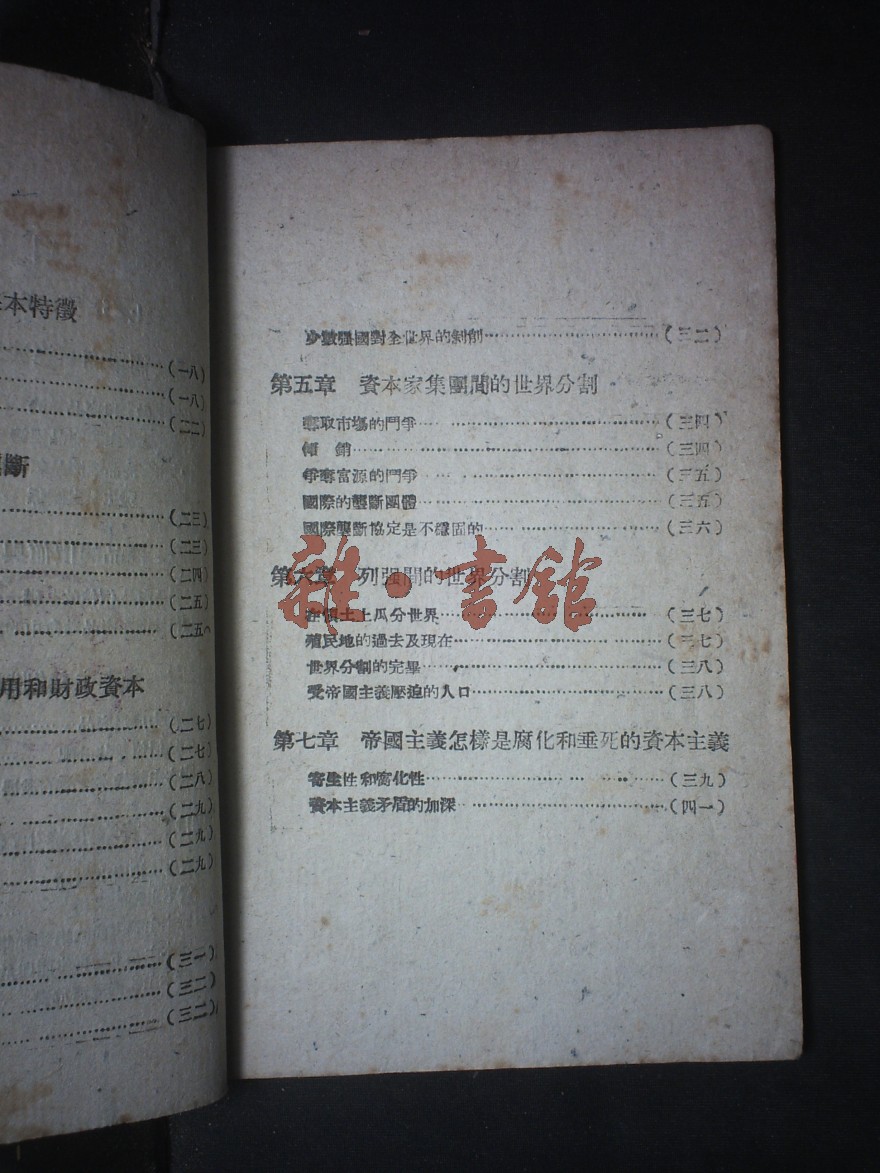 本特徵
(一八)
(一八)
(二二)
斷
(二三)
(二三)
(二四)
(二五)
(二五)
用和財政資本
(二七)
(二七)
(二八)
(二九)
(二九)
(二九)
(三一)
(三二)
(三二)
少數强國對全世界的剝削(三二)
第五章 資本家集團間的世界分割
奪取市場的鬥爭(三四)
傾銷(三四)
爭奪富源的鬥爭(三五)
國際的壟斷團體(三五)
國際壟斷協定是不穩固的(三六)
第六章 列强間的世界分割
在領土上瓜分世界(三七)
殖民地的過去及現在(三七)
世界分割的完畢(三八)
受帝國主義壓迫的人口(三八)
第七章 帝國主義怎樣是腐化和垂死的資本主義
寄生性和腐化性(三九)
資本主義矛盾的加深(四一)
雜·書館